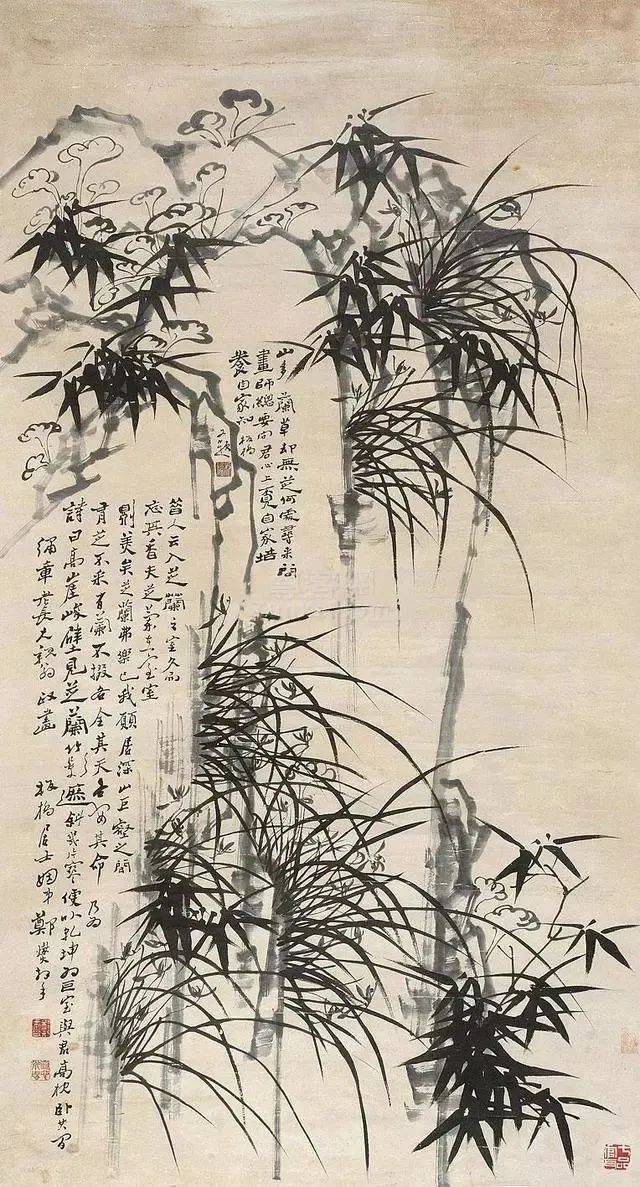 山多蘭草却無芝何處尋来問
畫師總要向君心上覓自家培
養自家知 板橋
又題
昔人云入芝蘭之室久而
忘其香夫芝蘭在室室
則美矣芝蘭弗樂也我願居深山巨壑之間
有芝不采有蘭不掇各全其天各安其命 乃為
詩曰高崖峻壁見芝蘭竹影遮斜幾片寒便以乾坤為巨室與君高枕卧其間
重老長兄親翁 政畫 板橋居士姻弟鄭燮拜手